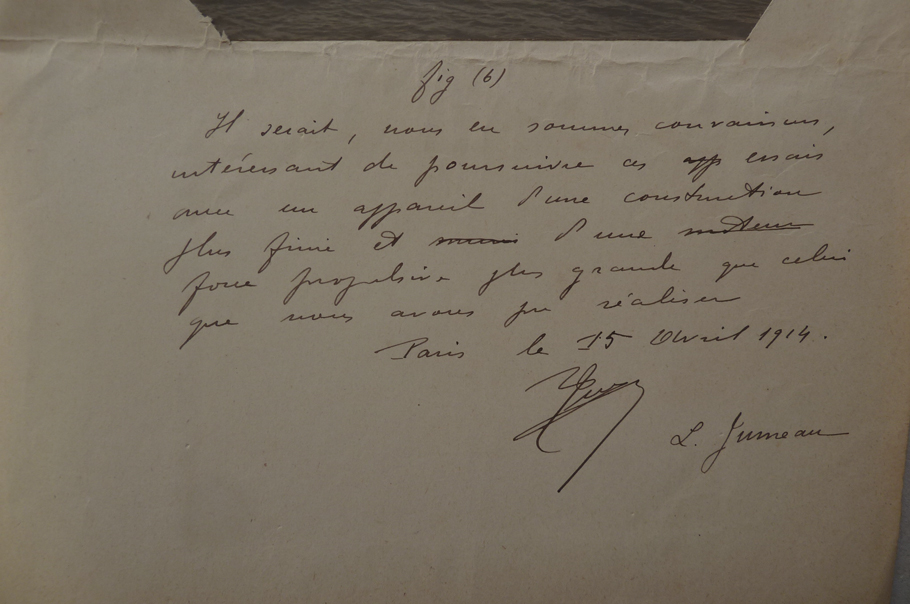 fig (6)
Il serait, nous en sommes convaincus,
intéressant de poursuivre ces app essais
avec un appareil d'une construction
plus finie et muni d'une moteur
force propulsive plus grande que celui
que nous avons pu réaliser
Paris le 15 Avril 1914.
L. Jumeau